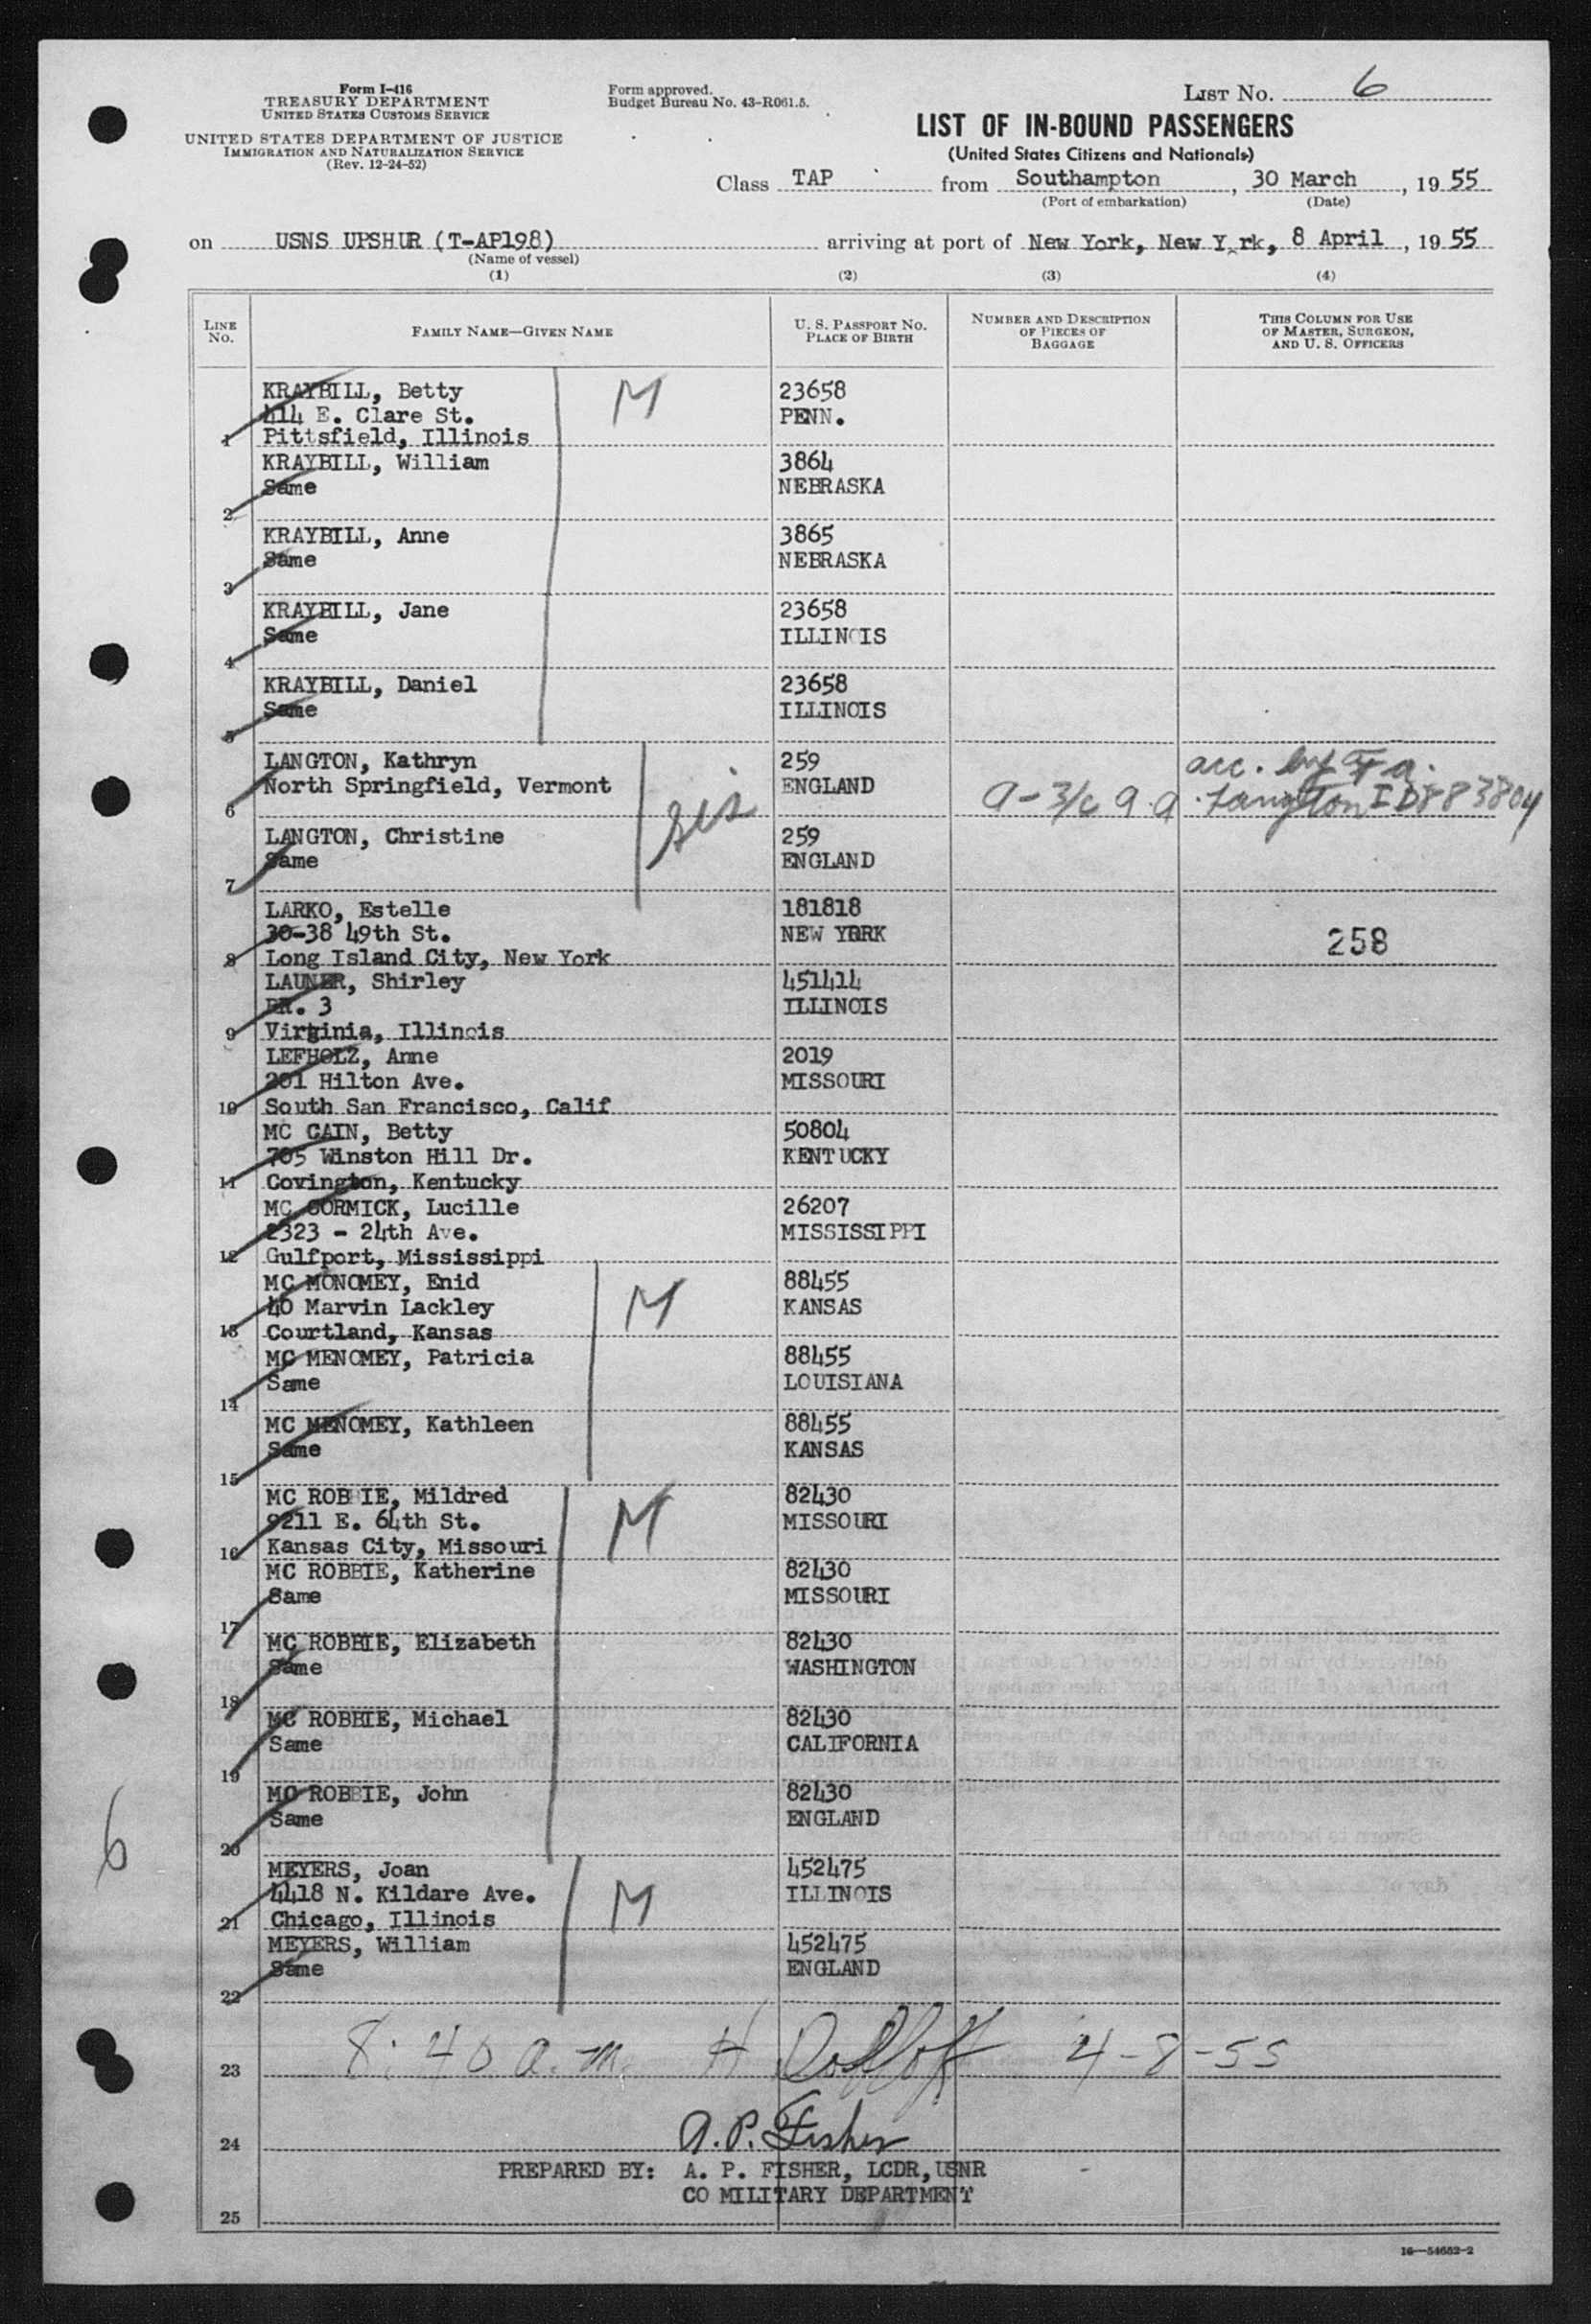 Form I-416
TREASURY DEPARTMENT
UNITED STATES CUSTOMS SERVICE
UNITED STATES DEPARTMENT OF JUSTICE
IMMIGRATION AND NATURALIZATION SERVICE
(Rev. 12-24-52)
Form approved.
Budget Bureau No. 43-R061.5.
LIST No. 6
LIST OF IN-BOUND PASSENGERS
(United States Citizens and Nationals)
Class TAP from Southampton, 30 March, 1955
(Port of embarkation) (Date)
on USNS UPSHUR (T-AP198) arriving at port of New York, New Y rk, 8 April, 1955
(Name of vessel)
(1) (2) (3) (4)
LINE No. FAMILY NAME—GIVEN NAME U. S. PASSPORT NO. PLACE OF BIRTH NUMBER AND DESCRIPTION OF PIECES OF BAGGAGE THIS COLUMN FOR USE OF MASTER, SURGEON, AND U. S. OFFICERS
KRAYBILL, Betty M 23658
414 E. Clare St. PENN.
1 Pittsfield, Illinois
KRAYBILL, William 3864
Same NEBRASKA
2
KRAYBILL, Anne 3865
Same NEBRASKA
3
KRAYBILL, Jane 23658
Same ILLINOIS
4
KRAYBILL, Daniel 23658
Same ILLINOIS
5
LANGTON, Kathryn 259 acc. by
North Springfield, Vermont sis ENGLAND a-3/c a.a. Langton ID883804
6
LANGTON, Christine 259
Same ENGLAND
7
LARKO, Estelle 181818
30-38 49th St. NEW YORK 258
8 Long Island City, New York
LAUNER, Shirley 451414
RR. 3 ILLINOIS
9 Virginia, Illinois
LEFHOLZ, Anne 2019
201 Hilton Ave. MISSOURI
10 South San Francisco, Calif
MC CAIN, Betty 50804
705 Winston Hill Dr. KENTUCKY
11 Covington, Kentucky
MC CORMICK, Lucille 26207
2323 - 24th Ave. MISSISSIPPI
12 Gulfport, Mississippi
MC MONOMEY, Enid M 88455
40 Marvin Lackley KANSAS
13 Courtland, Kansas
MC MENOMEY, Patricia 88455
Same LOUISIANA
14
MC MENOMEY, Kathleen 88455
Same KANSAS
15
MC ROBBIE, Mildred M 82430
9211 E. 64th St. MISSOURI
16 Kansas City, Missouri
MC ROBBIE, Katherine 82430
Same MISSOURI
17
MC ROBBIE, Elizabeth 82430
Same WASHINGTON
18
MC ROBBIE, Michael 82430
Same CALIFORNIA
19
MC ROBBIE, John 82430
Same ENGLAND
20
6
MEYERS, Joan M 452475
4418 N. Kildare Ave. ILLINOIS
21 Chicago, Illinois
MEYERS, William 452475
Same ENGLAND
22
23 8:40 a.m. H 4-8-55
24 A. P. Fisher
PREPARED BY: A. P. FISHER, LCDR, USNR
CO MILITARY DEPARTMENT
25
16—54652-2